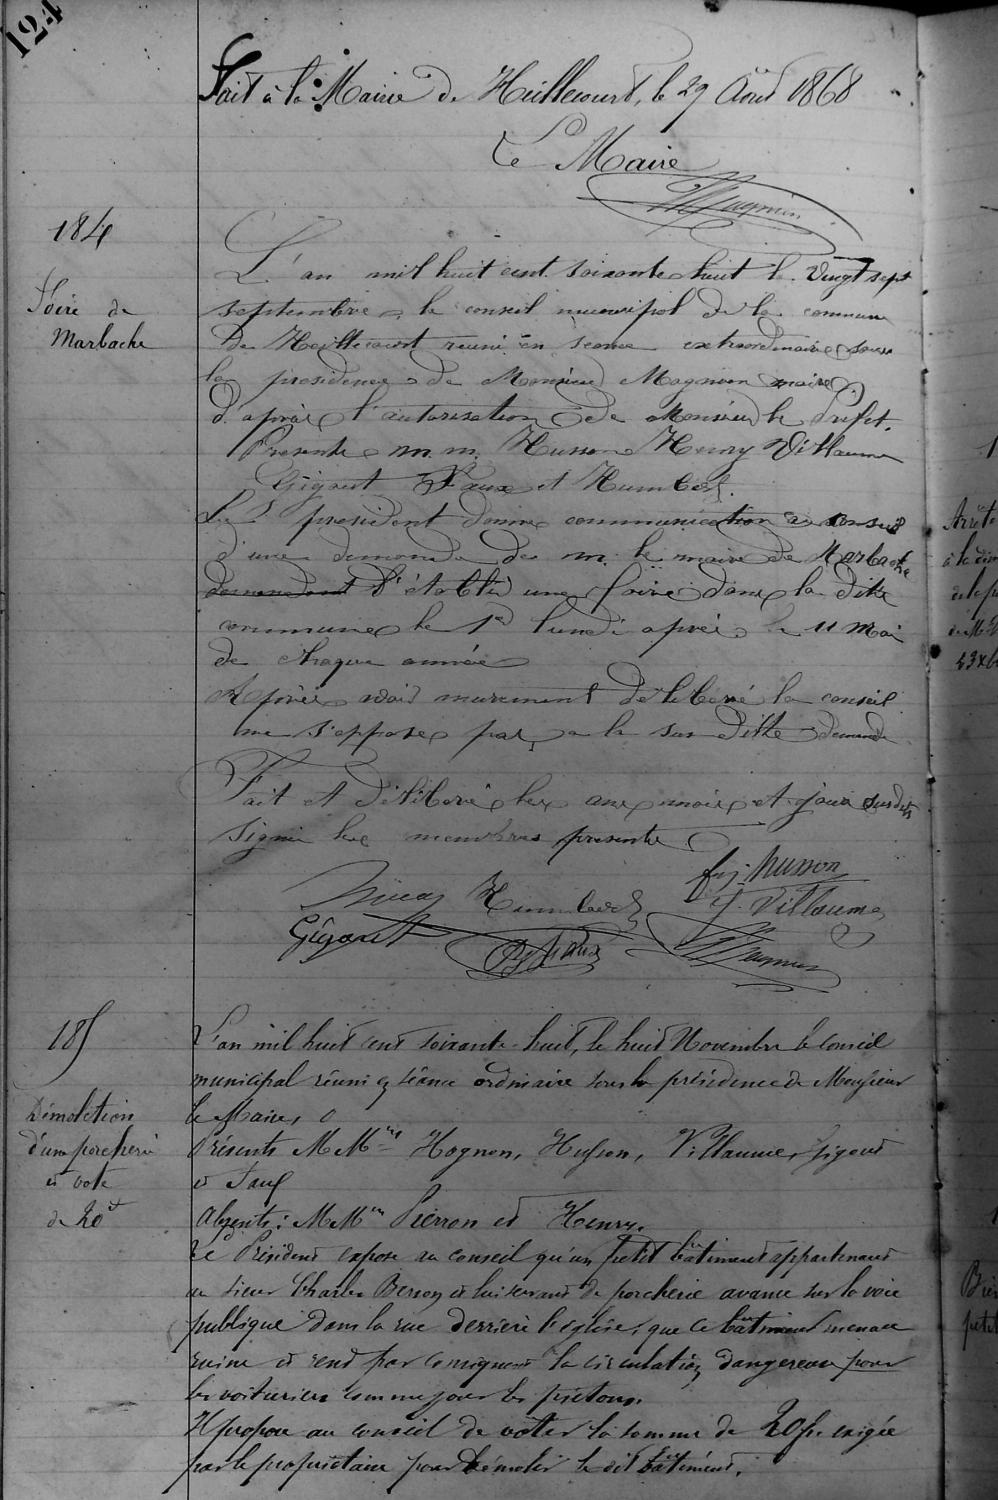 124
Fait à la Mairie de Heillecourt, le 29 Août 1868
Le Maire
184
Foire de
Marbache
L'an mil huit cent soixante huit le vingt sept
septembre le conseil municipal de la commune
de Heillecourt réuni en séance extraordinaire sous
la présidence de Monsieur Magnien maire
d'après l'autorisation de Monsieur le Préfet.
Présents m.m. Husson Henry Villaume
Gigout Faux et Humbert.
Le président donne communication au conseil
d'une demande de m. le maire de Marbache
demandant d'établir une foire dans la dite
commune le 1er lundi après le 11 Mai
de chaque année
Après avoir murement deliberé le conseil
ne s'oppose pas a la sus ditte demande
Fait et déliberé les an mois et jour susdits
signé les membres presents
Humbert
Husson
Villaume
Gigout
185
Démolition
d'une porcherie
et vote
de 20f
L'an mil huit cent soixante-huit, le huit Novembre le Conseil
municipal réuni en séance ordinaire sous la présidence de Monsieur
le Maire,
Présents M Mrs Hognon, Husson, Villaume, Gigout
et Faux
Absents : M Mrs Pierron et Henry.
Le Président expose au conseil qu'un petit bâtiment appartenant
au sieur Charles Besson et lui servant de porcherie avance sur la voie
publique dans la rue derrière l'église, que ce bâtiment menace
ruine et rend par conséquent la circulation dangereuse pour
les voituriers comme pour les piétons.
Il propose au conseil de voter la somme de 20 fr. exigée
par le propriétaire pour démolir le dit bâtiment.